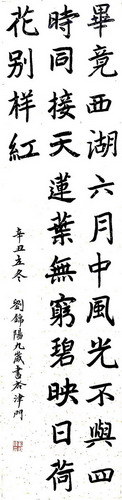 畢竟西湖六月中風光不與四
時同接天蓮葉無窮碧映日荷
花别样紅
辛丑立冬
劉錦陽九歲書於津門